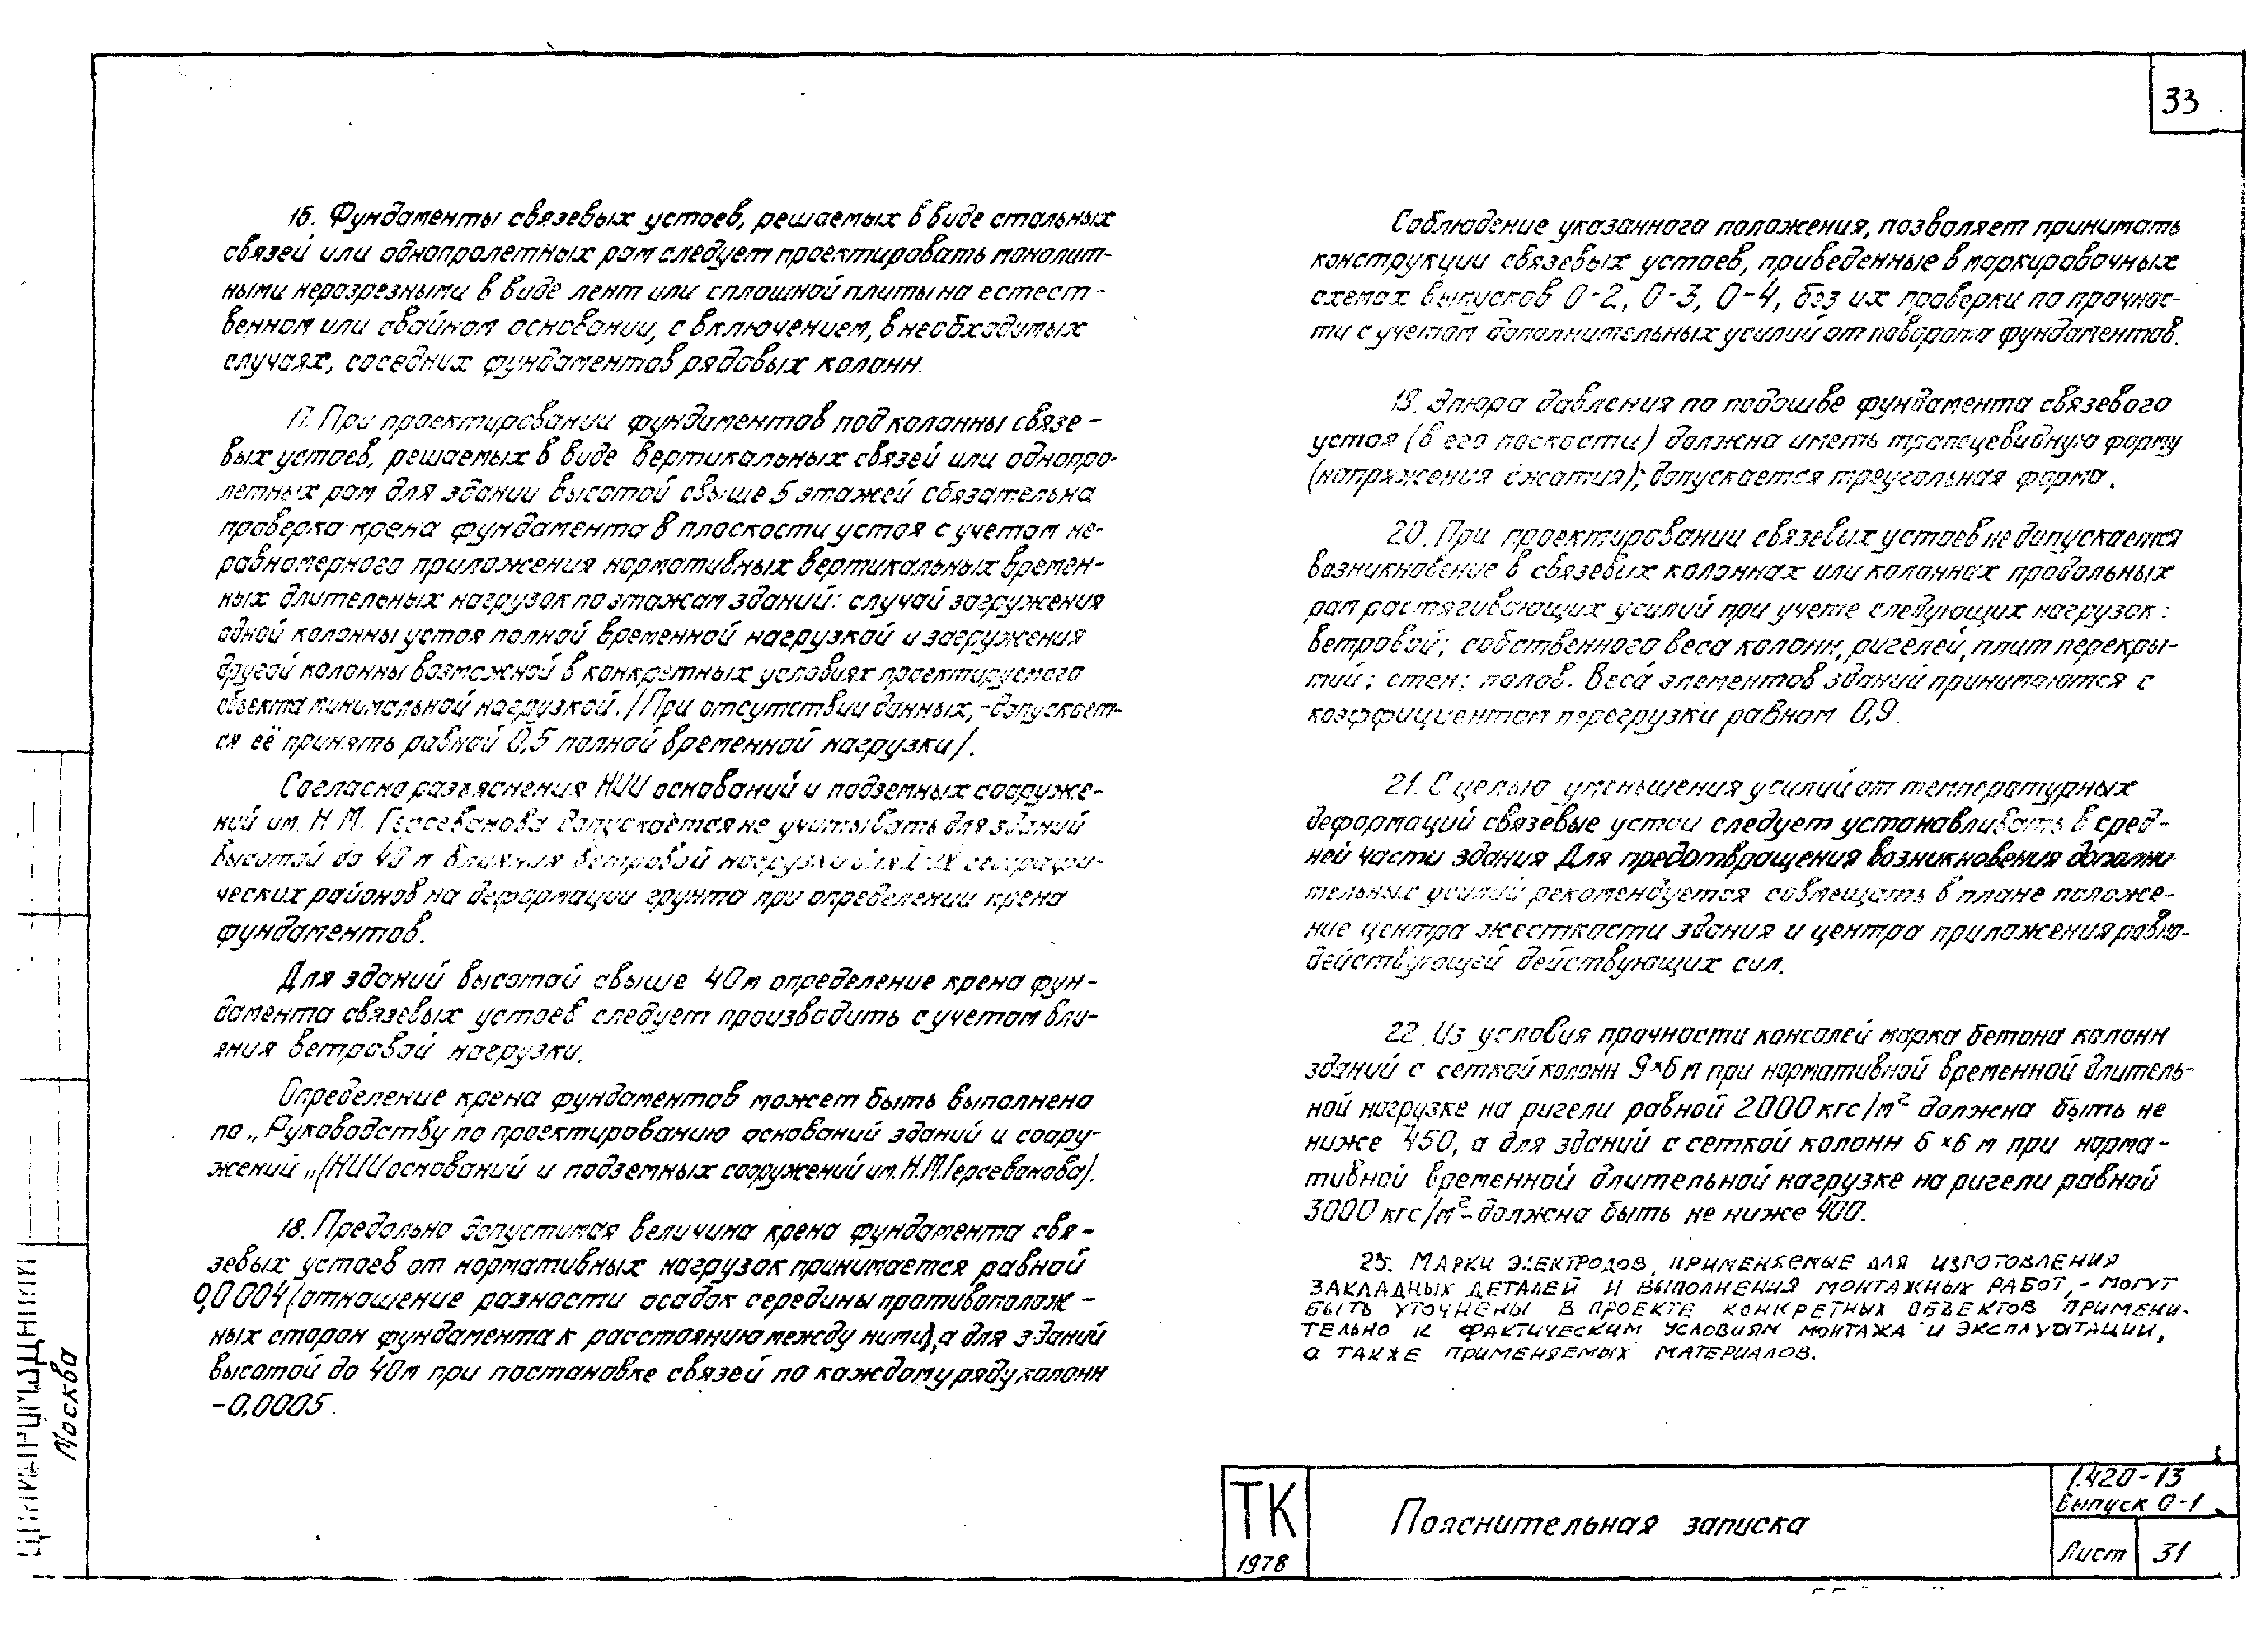 33
16. Фундаменты связевых устоев, решаемых в виде стальных
связей или однопролетных рам следует проектировать монолит-
ными неразрезными в виде лент или сплошной плиты на естест-
венном или свайном основании, с включением, в необходимых
случаях, соседних фундаментов рядовых колонн.
17. При проектировании фундаментов под колонны связе-
вых устоев, решаемых в виде вертикальных связей или однопро-
летных рам для здании высотой свыше 5 этажей обязательна
проверка крена фундамента в плоскости устоя с учетом не-
равномерного приложения нормативных вертикальных времен-
ных длительных нагрузок по этажам зданий: случай загружения
одной колонны устоя полной временной нагрузкой и загружения
другой колонны возможной в конкретных условиях проектируемого
объекта минимальной нагрузкой. /При отсутствии данных,-допускает-
ся её принять равной 0,5 полной временной нагрузки/.
Согласно разъяснения НИИ оснований и подземных сооруже-
ний им. Н М. Герсеванова допускается не учитывать для зданий
высотой до 40 м влияния ветровой нагрузки для I-IV географи-
ческих районов на деформации грунта при определении крена
фундаментов.
Для зданий высотой свыше 40м определение крена фун-
дамента связевых устоев следует производить с учетом вли-
яния ветровой нагрузки.
Определение крена фундаментов может быть выполнено
по „Руководству по проектированию оснований зданий и соору-
жений „(НИИ оснований и подземных сооружений им. Н.М.Герсеванова).
18. Предельно допустимая величина крена фундамента свя-
зевых устоев от нормативных нагрузок принимается равной
0,0004 (отношение разности осадок середины противополож-
ных сторон фундамента к расстоянию между ними), а для зданий
высотой до 40м при постановке связей по каждому ряду колонн
-0.0005.
Соблюдение указанного положения, позволяет принимать
конструкции связевых устоев, приведенные в маркировочных
схемах выпусков 0-2, 0-3, 0-4, без их проверки по прочнос-
ти с учетом дополнительных усилий от поворота фундаментов.
19. Эпюра давления по подошве фундамента связевого
устоя (в его поскости) должна иметь трапецевидную форму
(напряжения сжатия); допускается треугольная форма.
20. При проектировании связевых устоев не допускается
возникновение в связевых колоннах или колоннах продольных
рам растягивающих усилий при учете следующих нагрузок:
ветровой; собственного веса колонн, ригелей, плит перекры-
тий; стен; полов. Веса элементов зданий принимаются с
коэффициентом перегрузки равном 0,9.
21. С целью уменьшения усилий от температурных
деформаций связевые устои следует устанавливать в сред-
ней части здания Для предотвращения возникновения дополни
тельных усилий рекомендуется совмещать в плане положе-
ние центра жесткости здания и центра приложения равно-
действующей действующих сил.
22. Из условия прочности консолей марка бетона колонн
зданий с сеткой колонн 9×6 м при нормативной временной длитель-
ной нагрузке на ригели равной 2000 кгс/м² должна быть не
ниже 450, а для зданий с сеткой колонн 6×6 м при норма-
тивной временной длительной нагрузке на ригели равной
3000 кгс/м²-должна быть не ниже 400.
23. Марки электродов, применяемые для изготовления
закладных деталей и выполнения монтажных работ,- могут
быть уточнены в проекте конкретных объектов примени-
тельно к фактическим условиям монтажа и эксплуатации,
а также применяемых материалов.
Москва
ТК
1978
Пояснительная записка
1.420-13
Выпуск 0-1
Лист 31